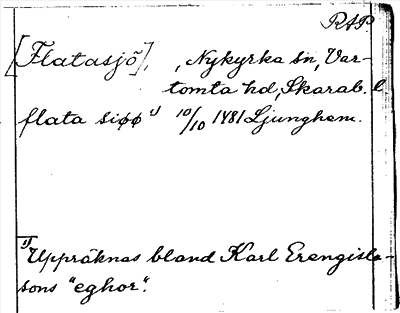 RAP.
[Flatasjö], , Nykyrka sn, Var-
tomta hd, Skarab. l
flata siøø 1) 10/10 1481 Ljunghem.
1) Uppräknas bland Karl Erengisle-
sons "eghor".